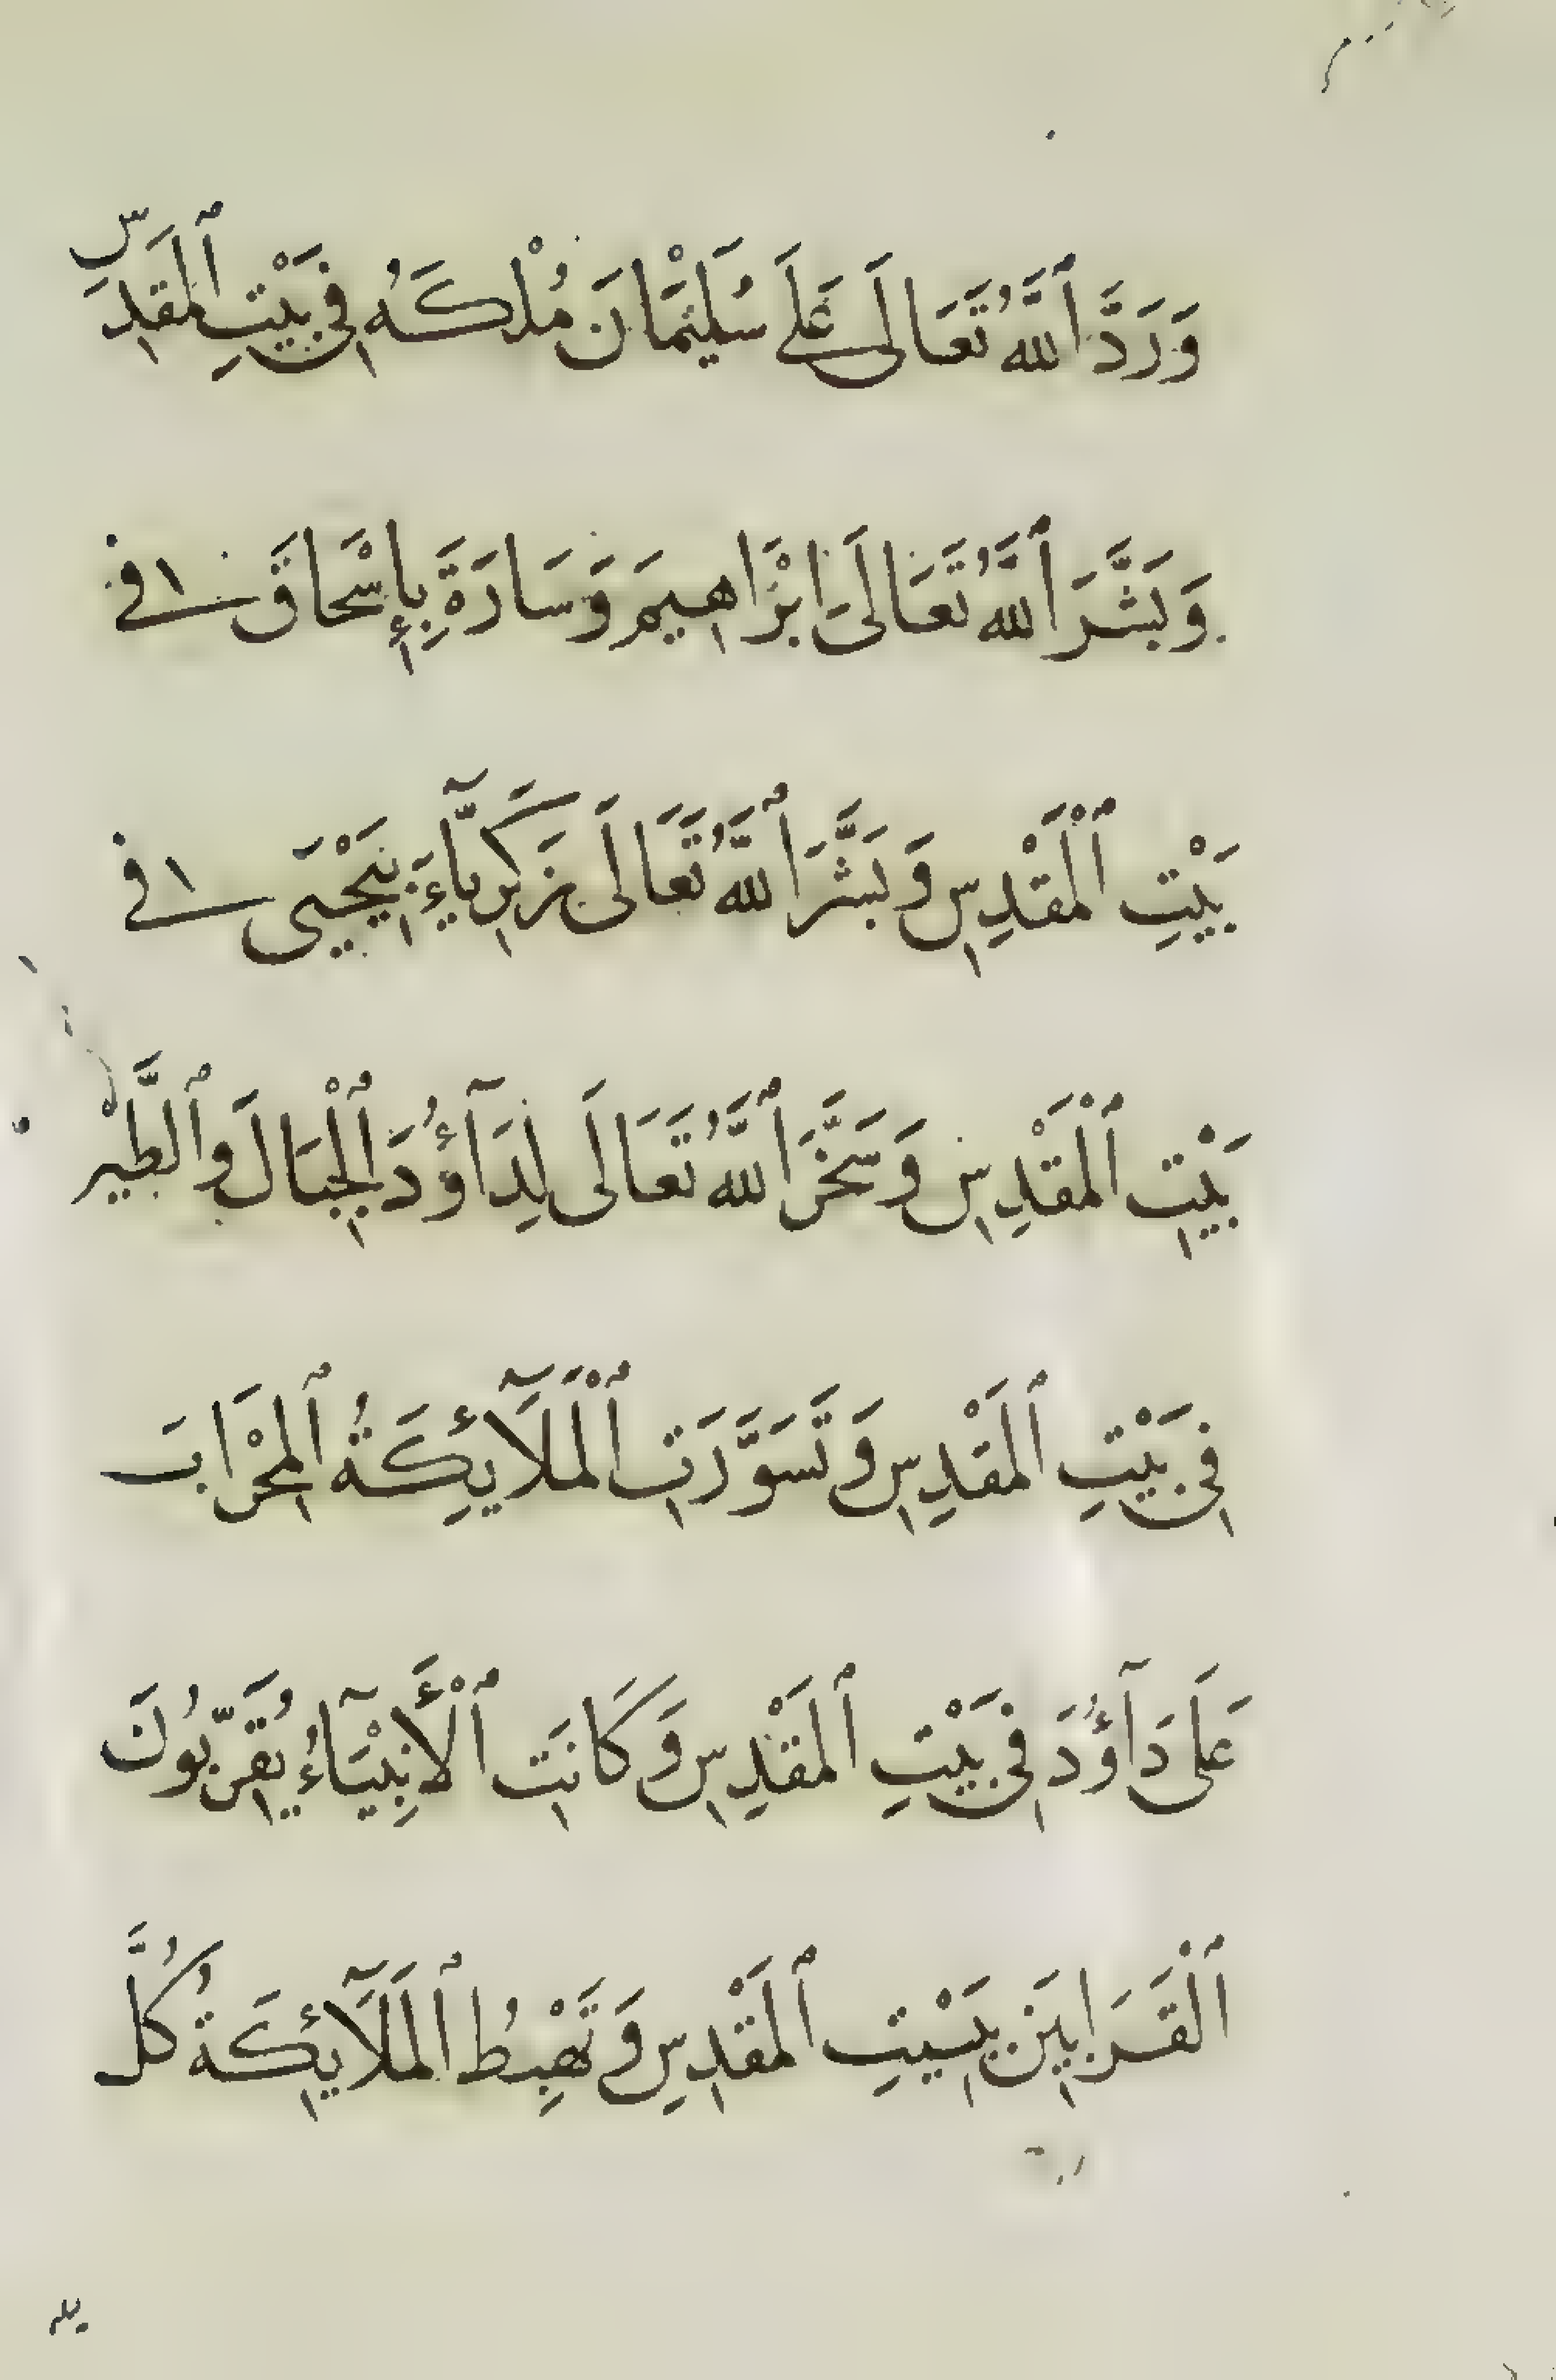 وَرَدَّ ٱللَّهُ تَعَالَى عَلَى سُلَيْمَانَ مُلْكَهُ فِي بَيْتِ ٱلْمَقْدِسِ
وَبَشَّرَ ٱللَّهُ تَعَالَى إِبْرَاهِيمَ وَسَارَةَ بِإِسْحَاقَ فِي
بَيْتِ ٱلْمَقْدِسِ وَبَشَّرَ ٱللَّهُ تَعَالَى زَكَرِيَّآءَ بِيَحْيَى فِي
بَيْتِ ٱلْمَقْدِسِ وَسَخَّرَ ٱللَّهُ تَعَالَى لِدَآؤُدَ ٱلْجِبَالَ وَٱلطَّيْرَ
فِي بَيْتِ ٱلْمَقْدِسِ وَتَسَوَّرَتِ ٱلْمَلَآئِكَةُ ٱلْمِحْرَابَ
عَلَى دَآؤُدَ فِي بَيْتِ ٱلْمَقْدِسِ وَكَانَتِ ٱلْأَنْبِيَآءُ يُقَرِّبُونَ
ٱلْقَرَابِينَ بِبَيْتِ ٱلْمَقْدِسِ وَتَهْبِطُ ٱلْمَلَآئِكَةُ كُلَّ